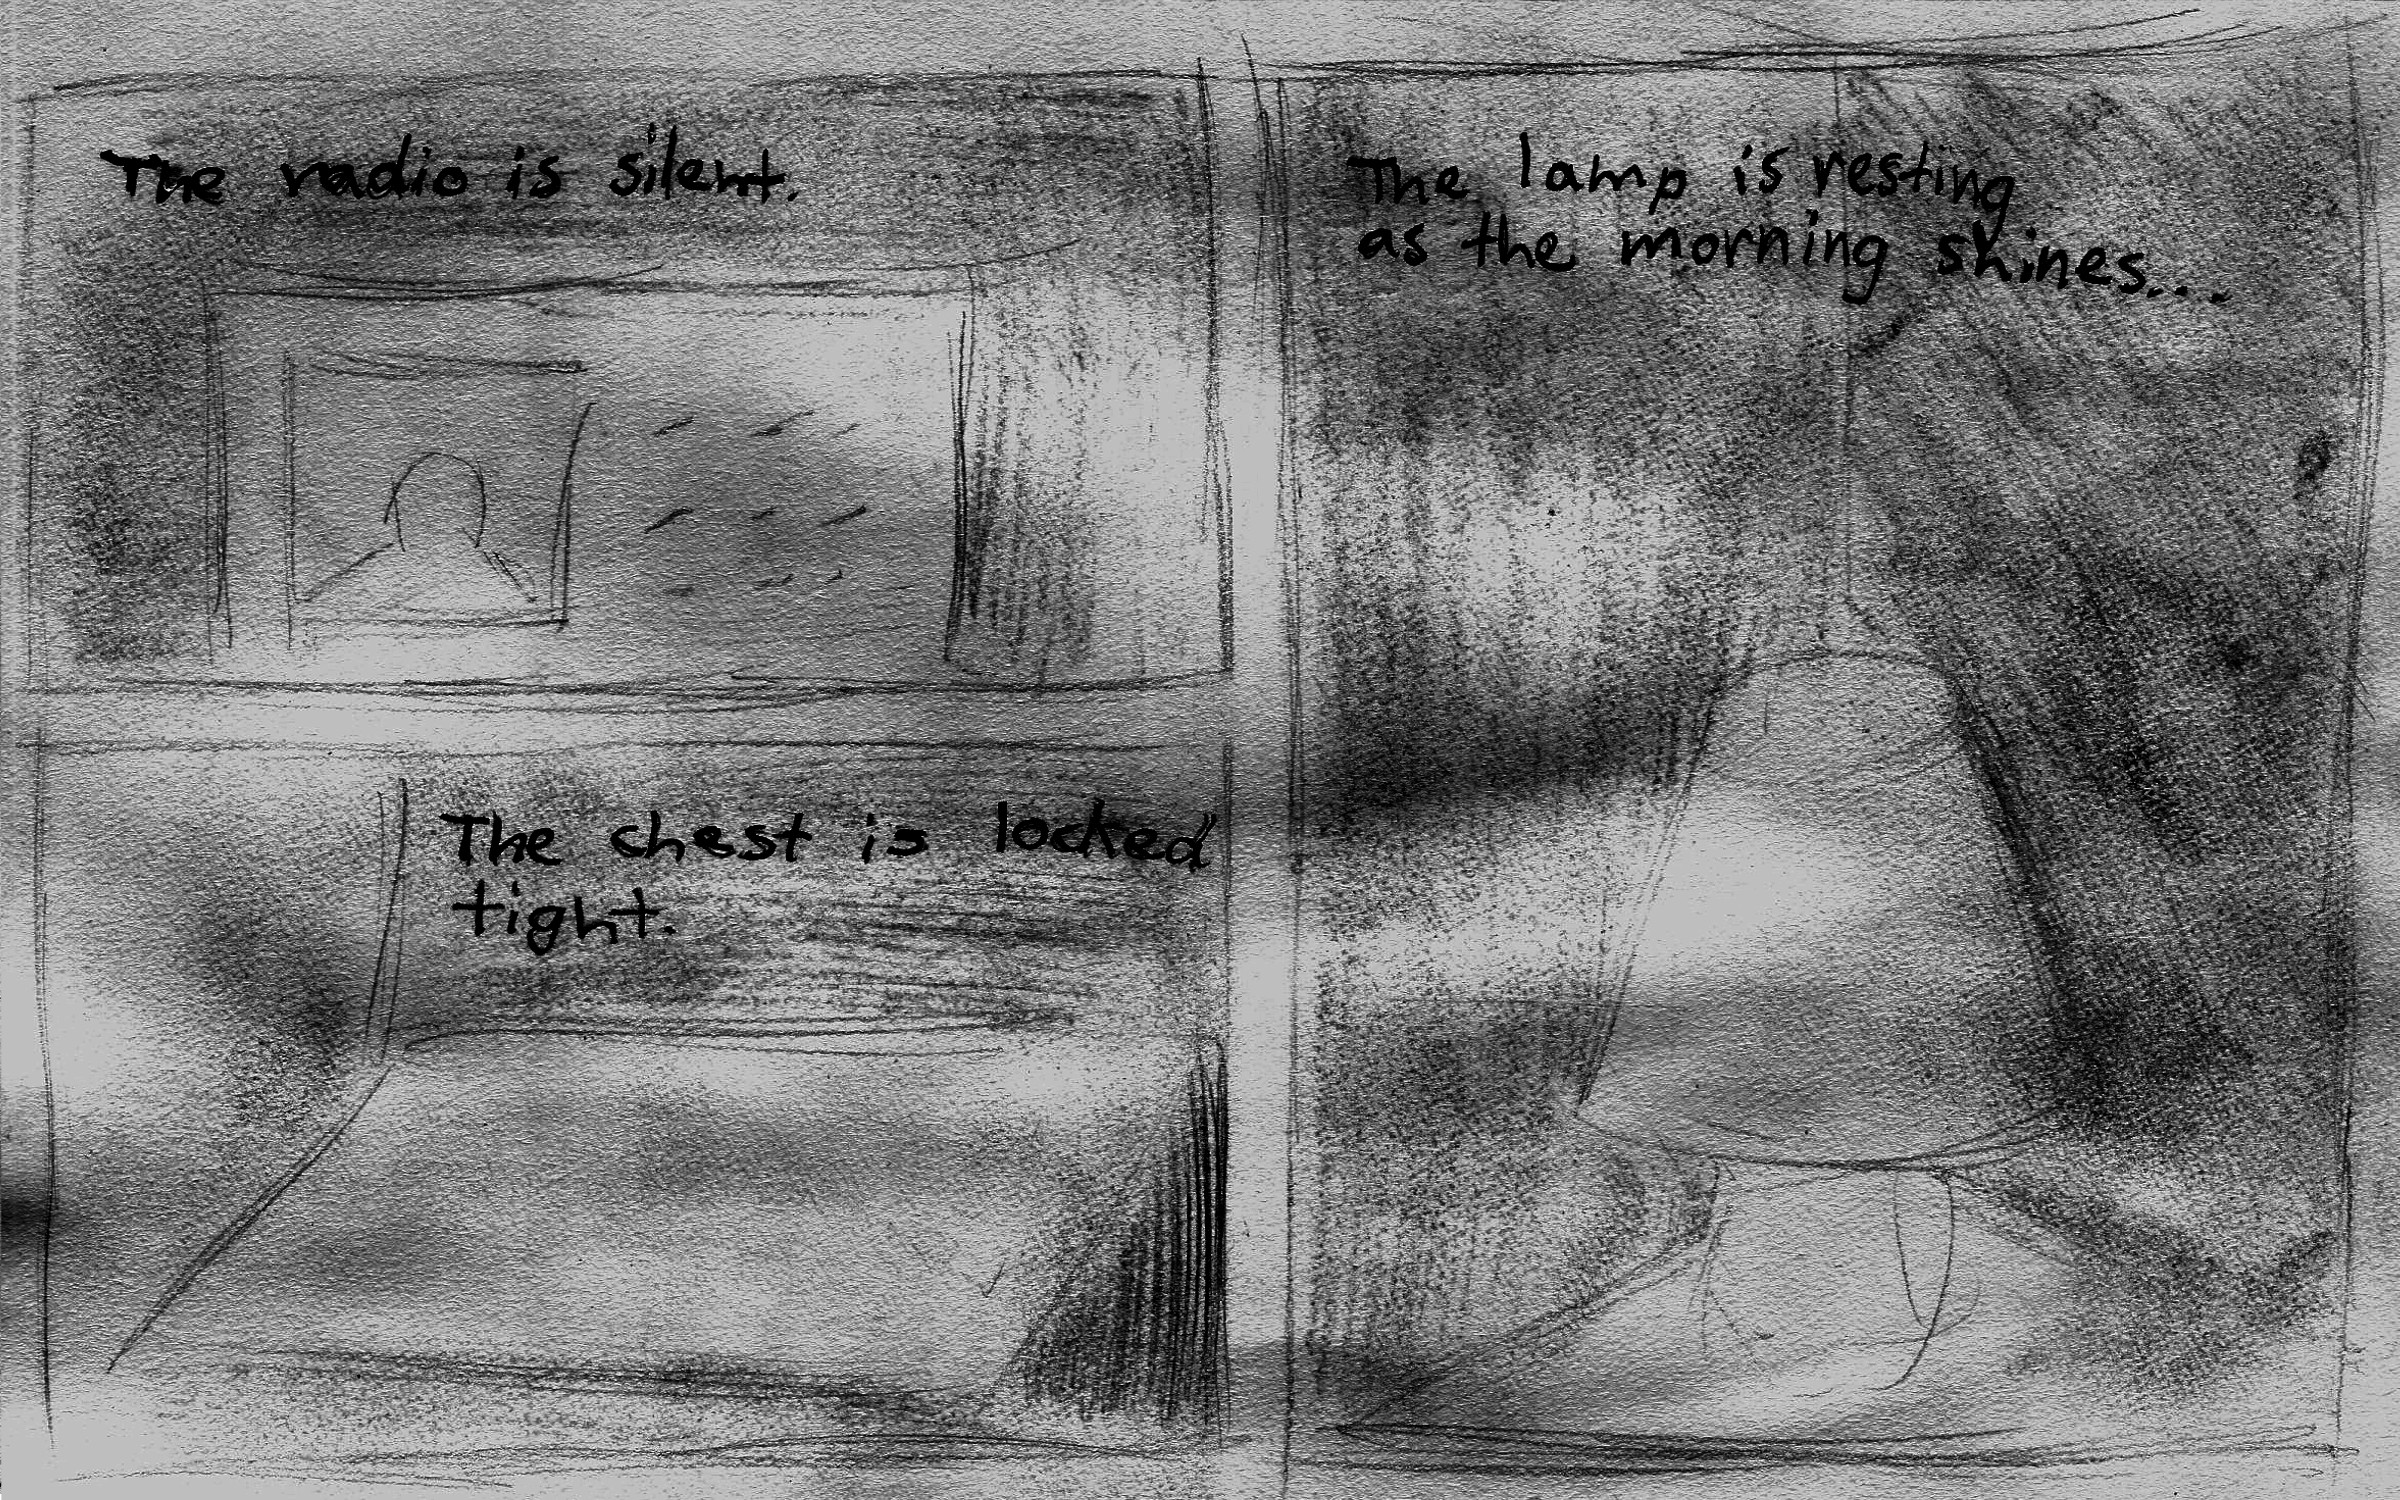 The radio is silent.
The chest is locked
tight.
The lamp is resting
as the morning shines...